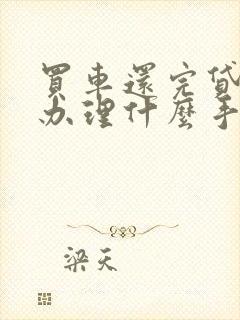 買車還完貸
办理什麼手
梁天